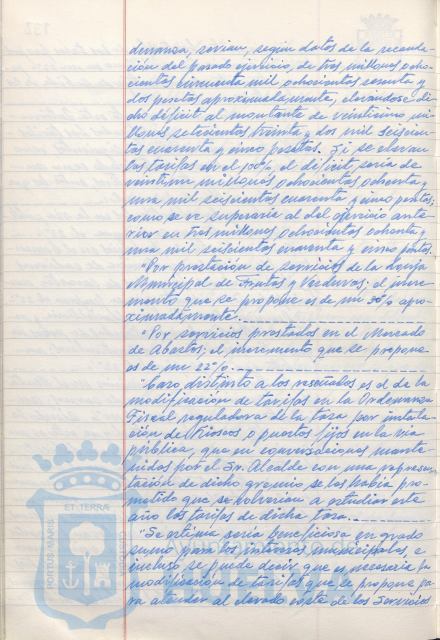 denanza, serían, según datos de la recauda-
ción del pasado ejercicio, de tres millones ocho-
cientas cincuenta mil ochocientas sesenta y
dos pesetas aproximadamente, elevándose di-
cho déficit al montante de veintiuno mi-
llones setecientas treinta y dos mil seiscien-
tas cuarenta y cinco pesetas. Y si se elevan
las tarifas en el 100%, el déficit sería de
veintiun millones ochocientas ochenta y
una mil seiscientas cuarenta y cinco pesetas;
como se ve superaría al del ejercicio ante-
rior en tres millones ochocientas ochenta y
una mil seiscientas cuarenta y cinco pesetas.
"Por prestación de servicios de la Lonja
Municipal de Frutas y Verduras: el incre-
mento que se propone es de un 30% apro-
ximadamente.
"Por servicios prestados en el Mercado
de Abastos; el incremento que se propone
es de un 22%.
"Caso distinto a los reseñados es el de la
modificación de tarifas en la Ordenanza
Fiscal reguladora de la tasa por instala-
ción de Kioscos o puestos fijos en la vía
pública, que en conversaciones mante-
nidas por el Sr. Alcalde con una represen-
tación de dicho gremio, se les había pro-
metido que se volverían a estudiar este
año las tarifas de dicha tasa.
"Se estima sería beneficiosa en grado
sumo para los intereses municipales, e
incluso se puede decir que es necesaria la
modificación de tarifas que se propone pa-
ra atender al elevado coste de los servicios
ET TERRÆ
PORTUS MARIS
CUSTODIA